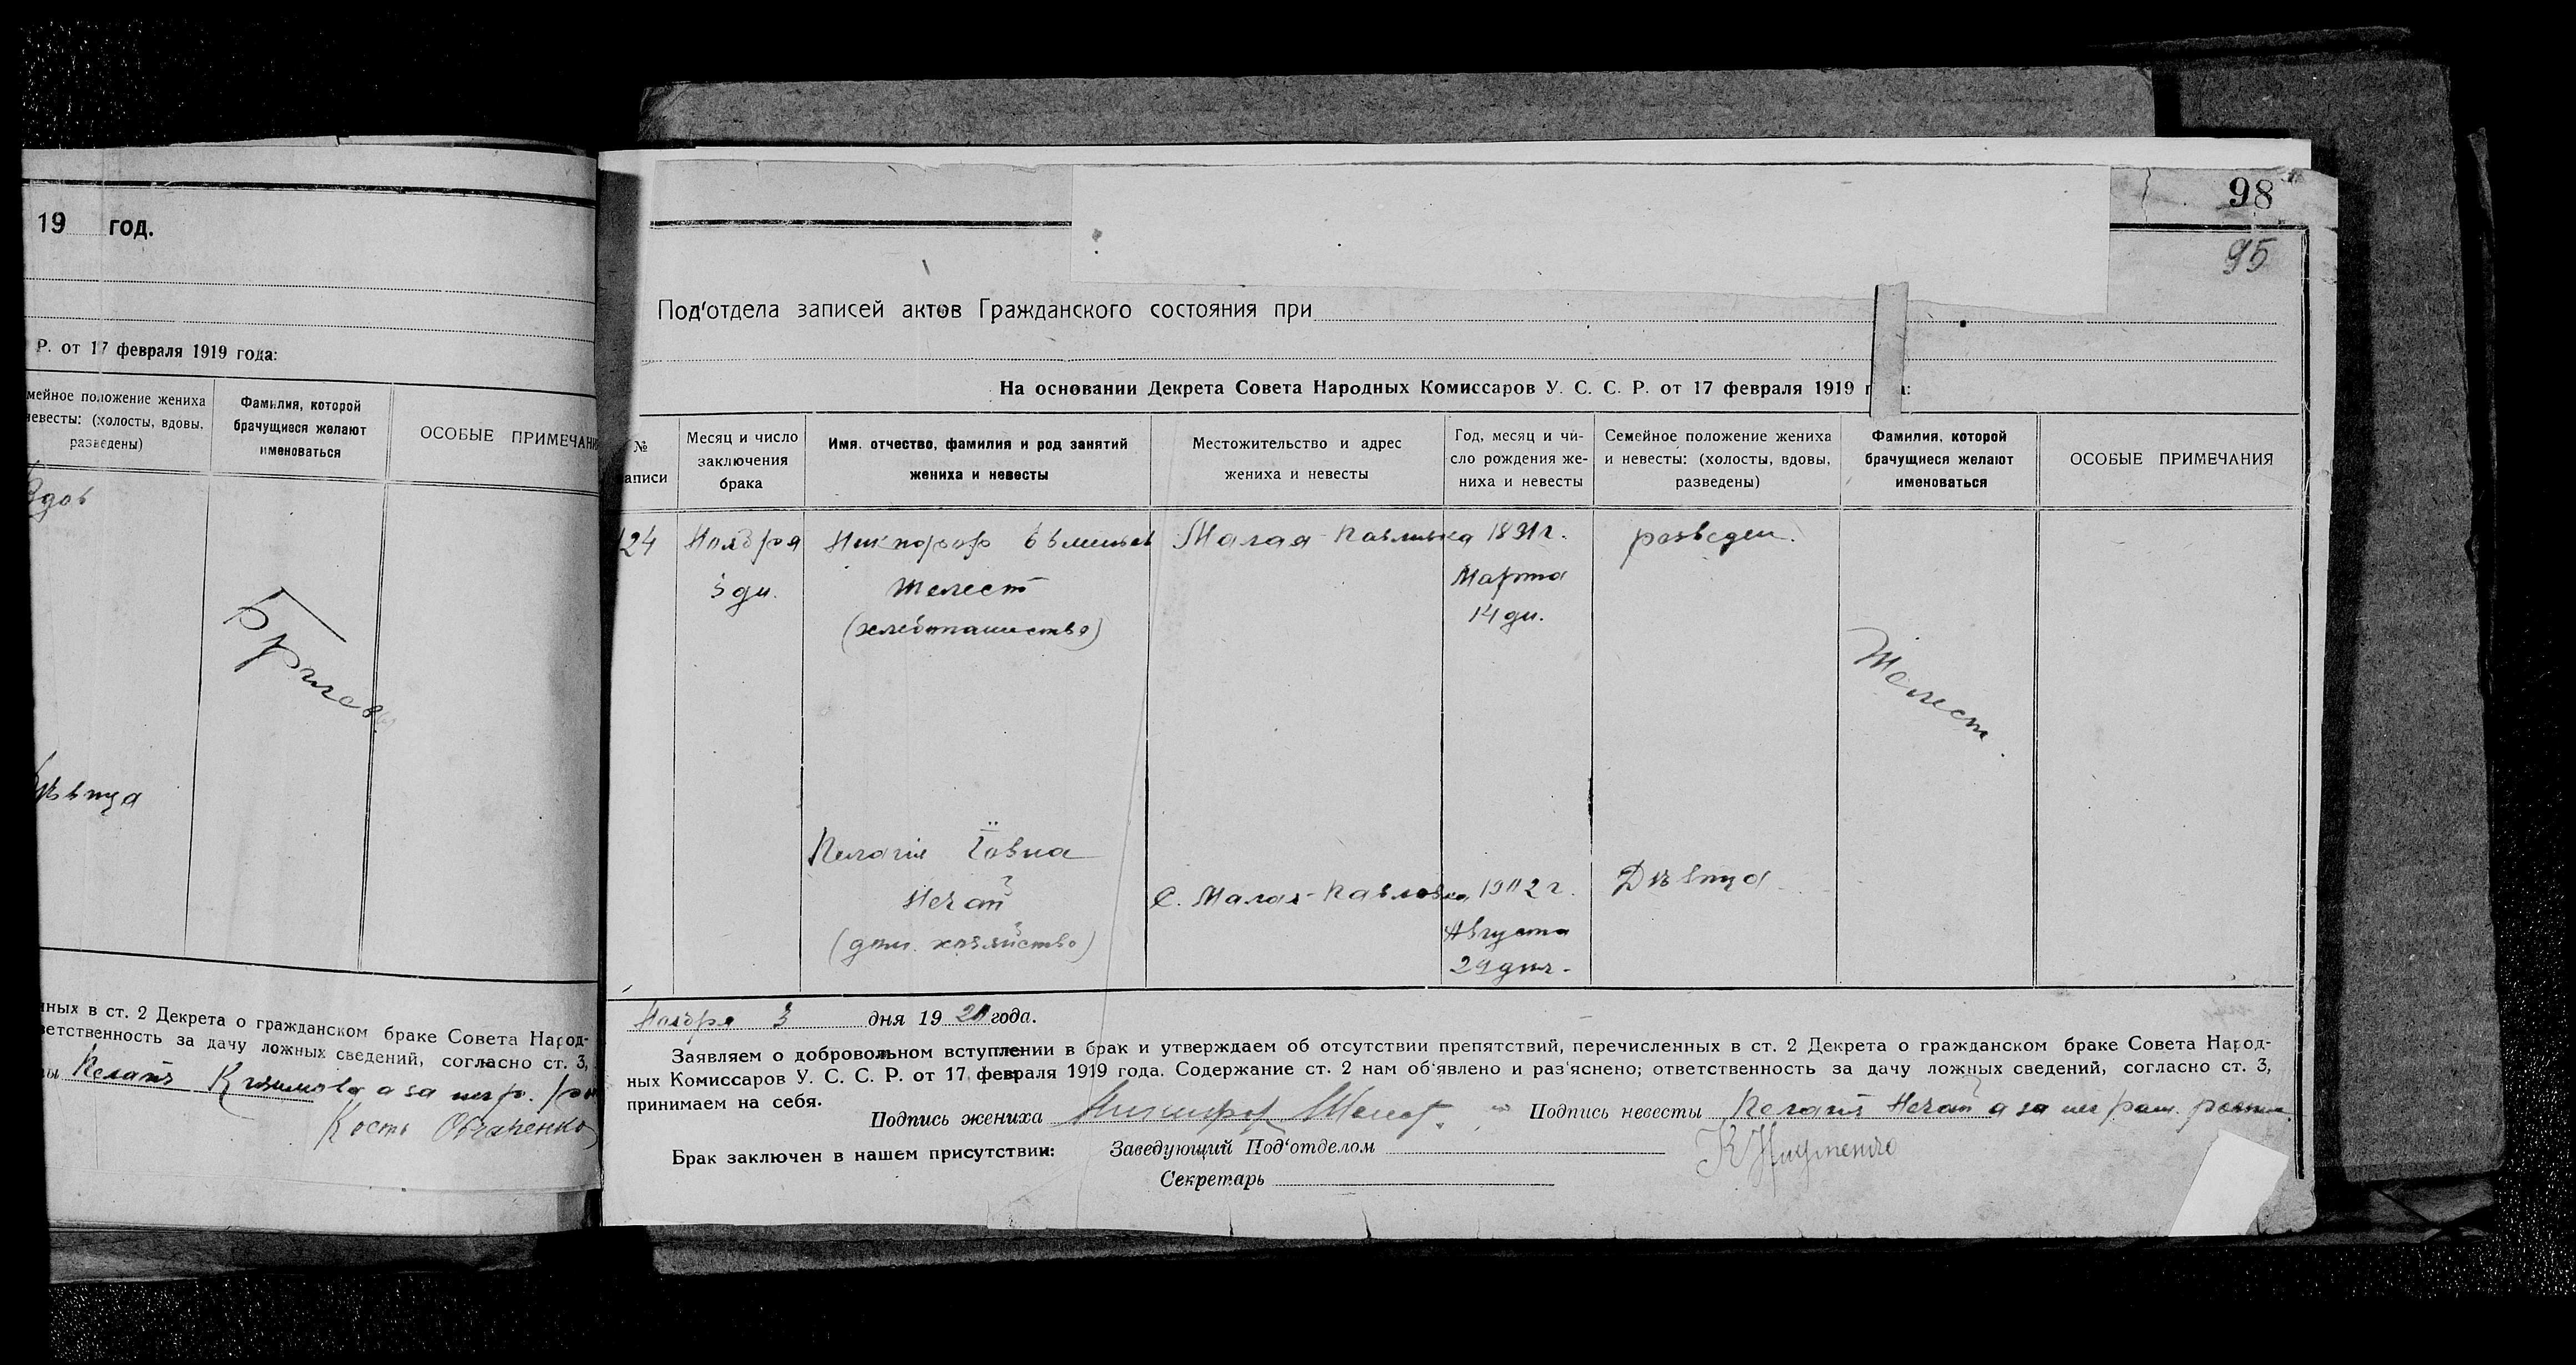 19 год.
Р. от 17 февраля 1919 года:
мейное положение жениха
невесты: (холосты, вдовы,
разведены)
Фамилия, которой
брачущиеся желают
именоваться
ОСОБЫЕ ПРИМЕЧАНИ
Вдов
Дѣвица
нных в ст. 2 Декрета о гражданском браке Совета Народ-
ветственность за дачу ложных сведений, согласно ст. 3,
ы а за негр.
Кость Овчаренко
98
95
Под'отдела записей актов Гражданского состояния при
На основании Декрета Совета Народных Комиссаров У. С. С. Р. от 17 февраля 1919 г а:
№
аписи
Месяц и число
заключения
брака
Имя, отчество, фамилия и род занятий
жениха и невесты
Местожительство и адрес
жениха и невесты
Год, месяц и чи-
сло рождения же-
ниха и невесты
Семейное положение жениха
и невесты: (холосты, вдовы,
разведены)
Фамилия, которой
брачущиеся желают
именоваться
ОСОБЫЕ ПРИМЕЧАНИЯ
124 Ноября Никифор Малая-Павливка 1891 г. разведен.
3 дн. Шелест Марта
(хлебопашество) 14 дн.
Шелест.
Пелагія Іовна
Нечай С. Малая-Павловка 1902 г. Дѣвица
(дом. хозяйство) Августа
29 дня.
Ноября 3 дня 19 20 года.
Заявляем о добровольном вступлении в брак и утверждаем об отсутствии препятствий, перечисленных в ст. 2 Декрета о гражданском браке Совета Народ-
ных Комиссаров У. С. С. Р. от 17 февраля 1919 года. Содержание ст. 2 нам об'явлено и раз'яснено; ответственность за дачу ложных сведений, согласно ст. 3,
принимаем на себя.
Подпись жениха Никифор Шелест. Подпись невесты Пелагія Нечай а за неграм.
Брак заключен в нашем присутствии: Заведующий Под'отделом
Секретарь